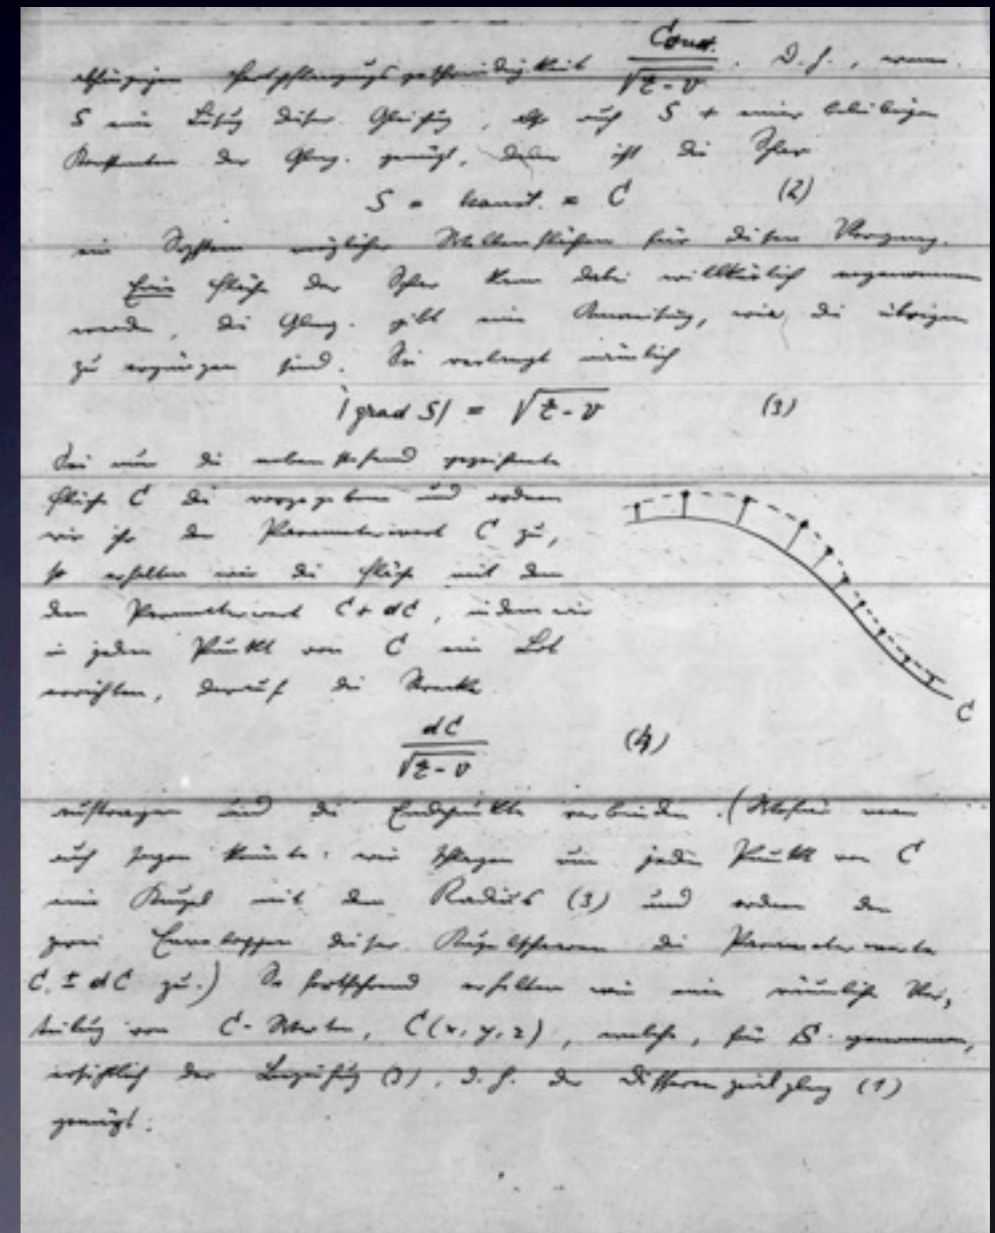 abhängigen Fortpflanzungsgeschwindigkeit Const. / √E-V . D. h., wenn
S eine Lösung dieser Gleichung, also auch S + einer beliebigen
Konstanten der Glchg. genügt, dann ist die Schar
S = konst. = C (2)
ein System möglicher Wellenflächen für diesen Vorgang.
Eine Fläche der Schar kann dabei willkürlich angenommen
werden, die Glchg. gibt eine Anweisung, wie die übrigen
zu ergänzen sind. Sie verlangt nämlich
|grad S| = √E-V (3)
Sei nun die nebenstehend gezeichnete
Fläche C die vorgegebene und ordnen
wir ihr den Parameterwert C zu,
so erhalten wir die Fläche mit dem
dem Parameterwert C + dC, indem wir
in jedem Punkt von C ein Lot
errichten, darauf die Strecke
dC / √E-V (4)
C
auftragen und die Endpunkte verbinden. ( man
auch sagen könnte: wir schlagen um jeden Punkt von C
eine Kugel mit dem Radius (3) und ordnen den
zwei Enveloppen dieser Kugelscharen die Parameterwerte
C ± dC zu.) So fortfahrend erhalten wir eine räumliche Ver-
teilung von C-Werten, C(x, y, z), welche, für S genommen,
ersichtlich der Beziehung (3), d. h. der Differenzialglchg (1)
genügt.